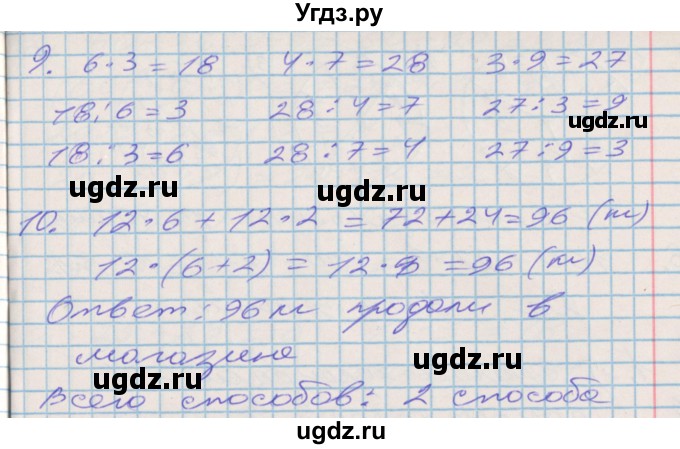 Угдз.ру
9. 6 · 3 = 18 4 · 7 = 28 3 · 9 = 27
18 : 6 = 3 28 : 4 = 7 27 : 3 = 9
ugdz.ru
18 : 3 = 6 28 : 7 = 4 27 : 9 = 3
ugdz.ru ugdz.ru
10. 12 · 6 + 12 · 2 = 72 + 24 = 96 (м)
12 · (6 + 2) = 12 · 8 = 96 (м)
ugdz.ru ugdz.ru
Ответ: 96 м продали в
магазине
ugdz.ru ugdz.ru
Всего способов: 2 способа
ugdz.ru